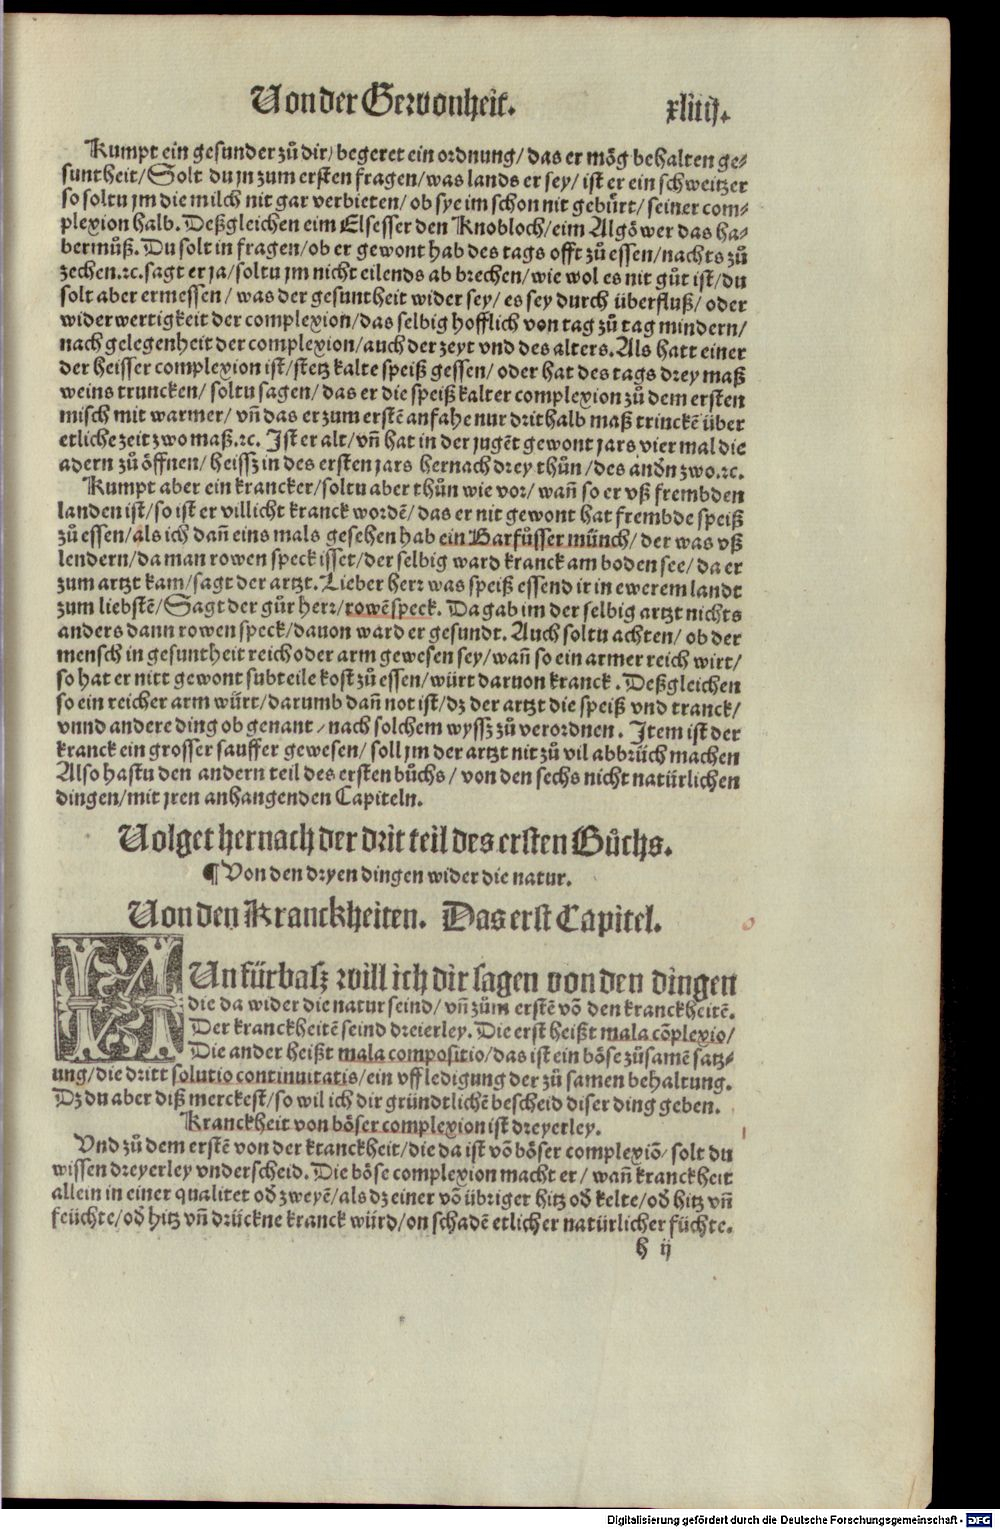 Von der Gewonheit.
xliiij.
Kumpt ein gesunder zů dir/ begeret ein ordnung/ das er mög behalten ge⸗
suntheit/ Solt du jn zum ersten fragen/ was lands er sey/ ist er ein schweitzer
so soltu jm die milch nit gar verbieten/ ob sye im schon nit gebürt/ seiner com⸗
plexion halb. Deßgleichen eim Elsesser den Knobloch/ eim Algöwer das ha⸗
bermůß. Du solt in fragen/ ob er gewont hab des tags offt zů essen/ nachts zů
zechen.⁊c. sagt er ja/ soltu jm nicht eilends ab brechen/ wie wol es nit gůt ist/ du
solt aber ermessen/ was der gesuntheit wider sey/ es sey durch überfluß/ oder
widerwertigkeit der complexion/ das selbig hofflich von tag zů tag mindern/
nach gelegenheit der complexion/ auch der zeyt vnd des alters. Als hatt einer
der heisser complexion ist/ stetz kalte speiß gessen/ oder hat des tags drey maß
weins truncken/ soltu sagen/ das er die speiß kalter complexion zů dem ersten
misch mit warmer/ vñ das er zum erstẽ anfahe nur drithalb maß trinckẽ über
etliche zeit zwo maß.⁊c. Ist er alt/ vñ hat in der jugẽt gewont jars vier mal die
adern zů öffnen/ heissz in des ersten jars hernach drey thůn/ des andñ zwo.⁊c.
Kumpt aber ein krancker/ soltu aber thůn wie vor/ wañ so er vß frembden
landen ist/ so ist er villicht kranck wordẽ/ das er nit gewont hat frembde speiß
zů essen/ als ich dañ eins mals gesehen hab ein Barfůsser münch/ der was vß
lendern/ da man rowen speck isset/ der selbig ward kranck am boden see/ da er
zum artzt kam/ sagt der artzt. Lieber herr was speiß essend ir in ewerem landt
zum liebstẽ/ Sagt der gůt herr/ rowẽ speck. Da gab im der selbig artzt nichts
anders dann rowen speck/ dauon ward er gesundt. Auch soltu achten/ ob der
mensch in gesuntheit reich oder arm gewesen sey/ wañ so ein armer reich wirt/
so hat er nitt gewont subteile kost zů essen/ würt daruon kranck. Deßgleichen
so ein reicher arm würt/ darumb dañ not ist/ dz der artzt die speiß vnd tranck/
vnnd andere ding ob genant/ nach solchem wyssz zů verordnen. Item ist der
kranck ein grosser sauffer gewesen/ soll jm der artzt nit zů vil abbrüch machen
Also hastu den andern teil des ersten bůchs/ von den sechs nicht natürlichen
dingen/ mit jren anhangenden Capiteln.
Volget hernach der drit teil des ersten Bůchs.
¶ Von den dryen dingen wider die natur.
Von den Kranckheiten. Das erst Capitel.
NUn fürbasz will ich dir sagen von den dingen
die da wider die natur seind/ vñ zům erstẽ võ den kranckheitẽ.
Der kranckheitẽ seind dreierley. Die erst heißt mala cõplexio/
Die ander heißt mala compositio/ das ist ein böse zůsamẽ satz⸗
ung/ die dritt solutio continuitatis/ ein vffledigung der zů samen behaltung.
Dz du aber diß merckest/ so wil ich dir gründtlichẽ bescheid diser ding geben.
Kranckheit von böser complexion ist dreyerley.
Vnd zů dem erstẽ von der kranckheit/ die da ist võ böser complexiõ/ solt du
wissen dreyerley vnderscheid. Die böse complexion macht er/ wañ kranckheit
allein in einer qualitet oď zweyẽ/ als dz einer võ übriger hitz oď kelte/ oď hitz vñ
feüchte/ oď hitz vñ drückne kranck würd/ on schadẽ etlicher natürlicher füchte.
h ij
Digitalisierung gefördert durch die Deutsche Forschungsgemeinschaft - DFG